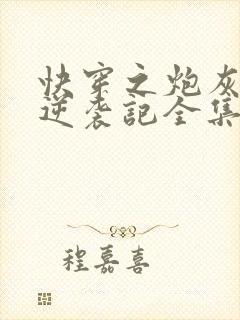 快穿之炮灰
逆袭记全集
程嘉喜